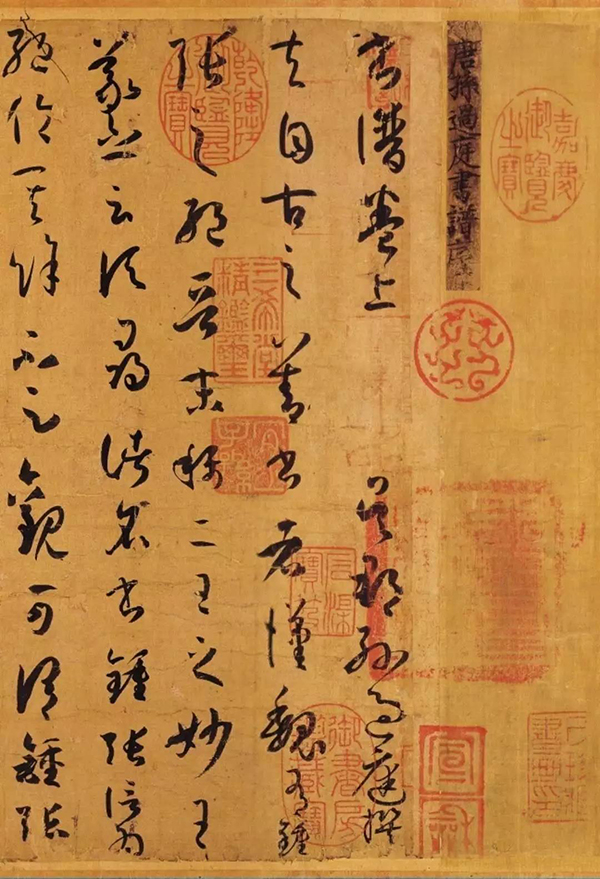 嘉慶御覽之寶
唐孫過庭書譜序
宣龢
書譜卷上 吳郡孫過庭撰
夫自古之善書者漢魏有鍾
張之絕晉末稱二王之妙王
羲之云頃尋諸名書鍾張信為
絕倫其餘不足觀可謂鍾張
乾隆御覽之寶
三希堂精鑑璽
宜子孫
石渠寶笈
御書房鑑藏寶